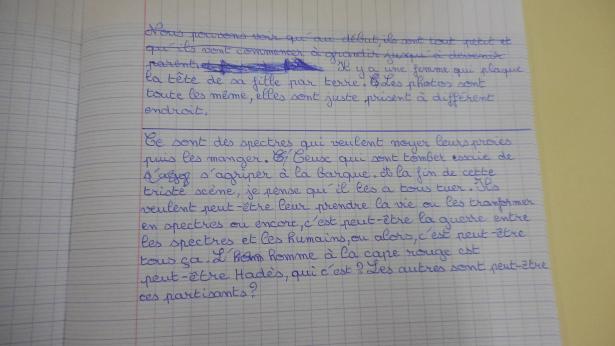 Nous pouvons voir qu'au début, ils sont tout petit et
qu'ils vont commencer à grandir jusqu'à devenir
parent. Il y a une femme qui plaque
la tête de sa fille par terre. Les photos sont
toute les même, elles sont juste prisent à différent
endroit.
Ce sont des spectres qui veulent noyer leurs proies
puis les manger. Ceux qui sont tomber essaie de
s'agriper à la barque. A la fin de cette
triste scène, je pense qu'il les a tous tuer. Ils
veulent peut-être leur prendre la vie ou les tranformer
en spectres ou encore, c'est peut-être la guerre entre
les spectres et les humains, ou alors, c'est peut-être
tous ça. L'homme à la cape rouge est
peut-être Hadès, qui c'est? Les autres sont peut-être
ces partisants?